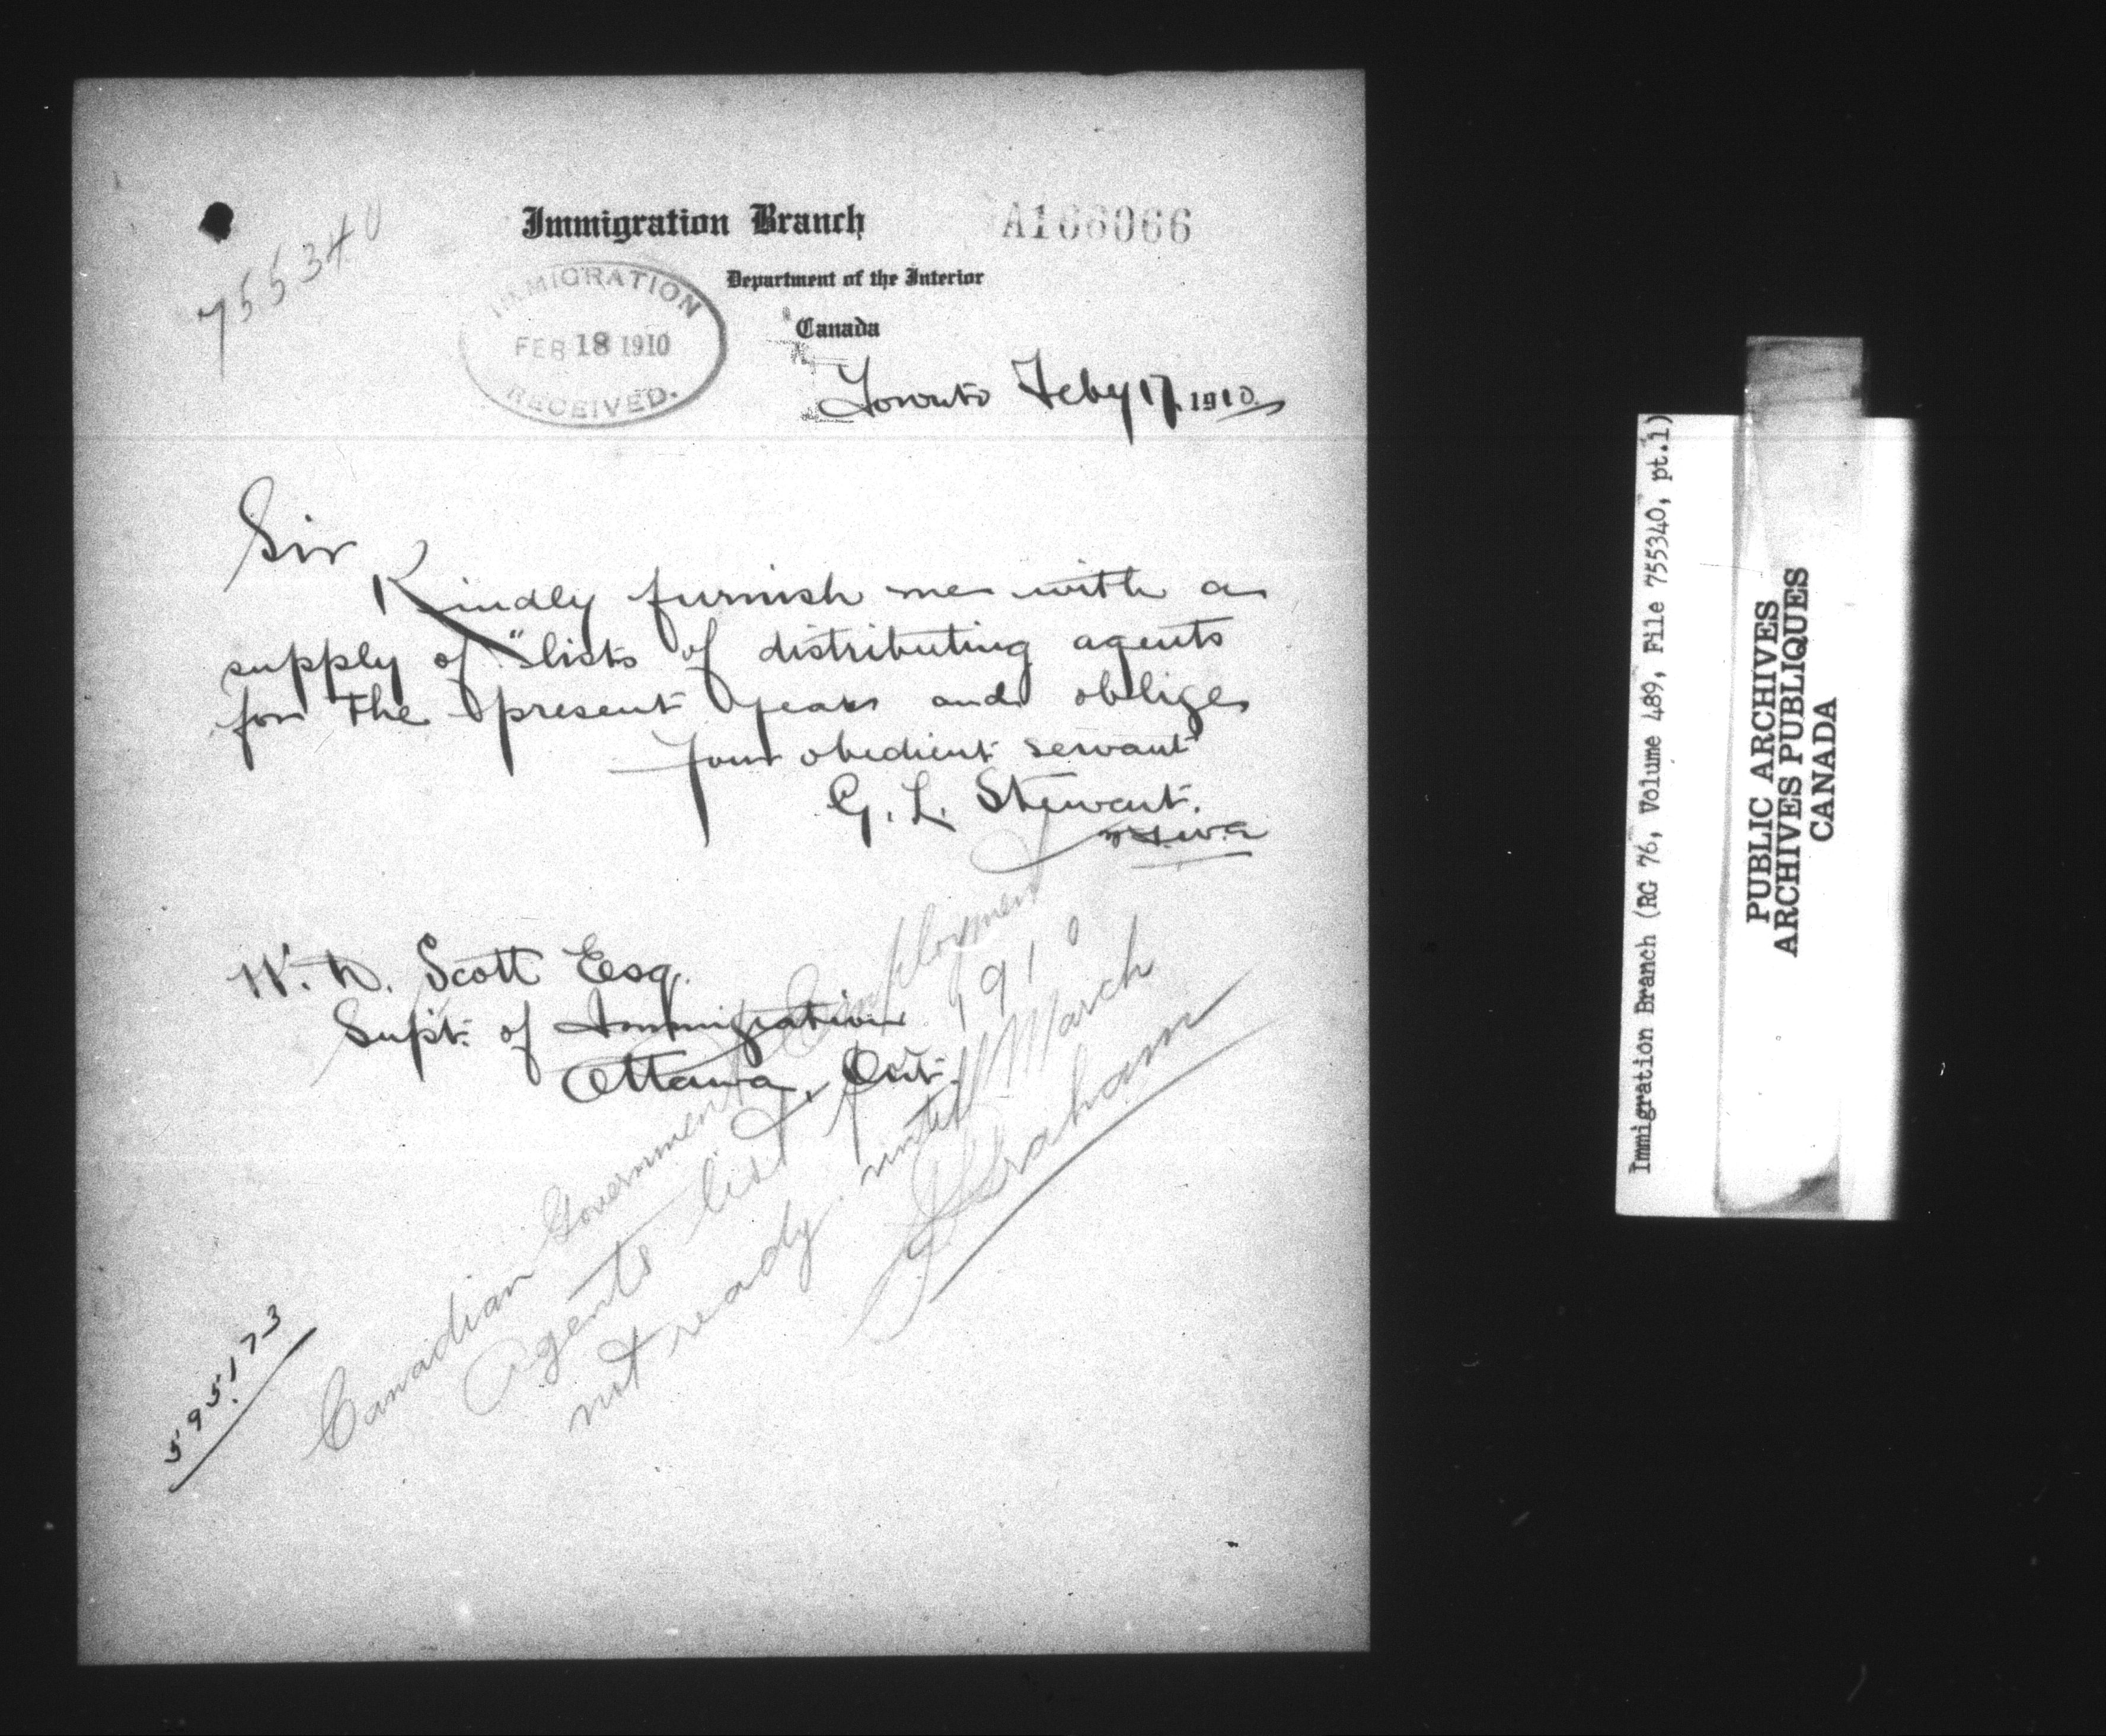 755340
Immigration Branch
A106066
Department of the Interior
Canada
IMMIGRATION
FEB 18 1910
RECEIVED.
Toronto Feby 17, 1910.
Sir
Kindly furnish me with a
supply of "lists of distributing agents
for the present year and oblige
Your obedient servant
G. L. Stewart.
W. D. Scott Esq.
Supt. of Immigration
Ottawa, Ont.
Canadian Government Employment
Agents list for 1910
not ready until March
Graham
595173
Immigration Branch (RG 76, Volume 489, File 755340, pt.1)
PUBLIC ARCHIVES
ARCHIVES PUBLIQUES
CANADA